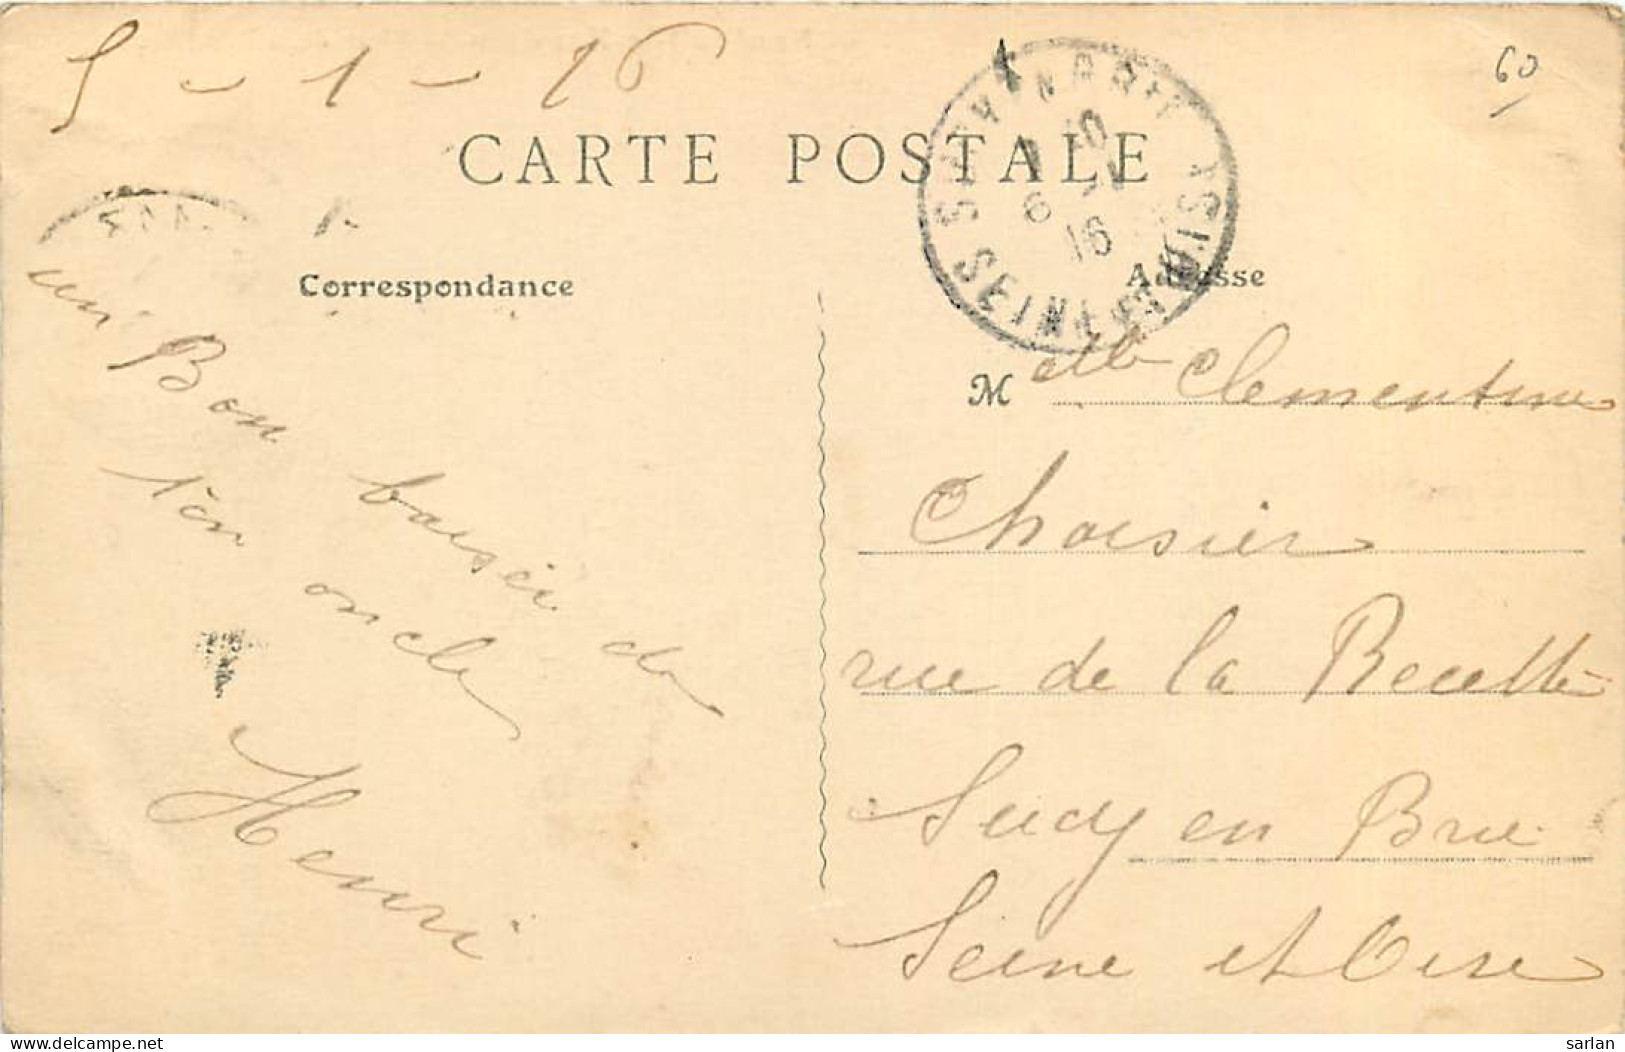 5 - 1 - 16
60
CARTE POSTALE
SEINE ET OISE
6 - 1
16
Correspondance
Adresse
un Bon baiser de
ton oncle
Henri
M elle Clementine
Choisier
rue de la Recette
Sucy en Brie
Seine et Oise
delcampe.net
sarlan